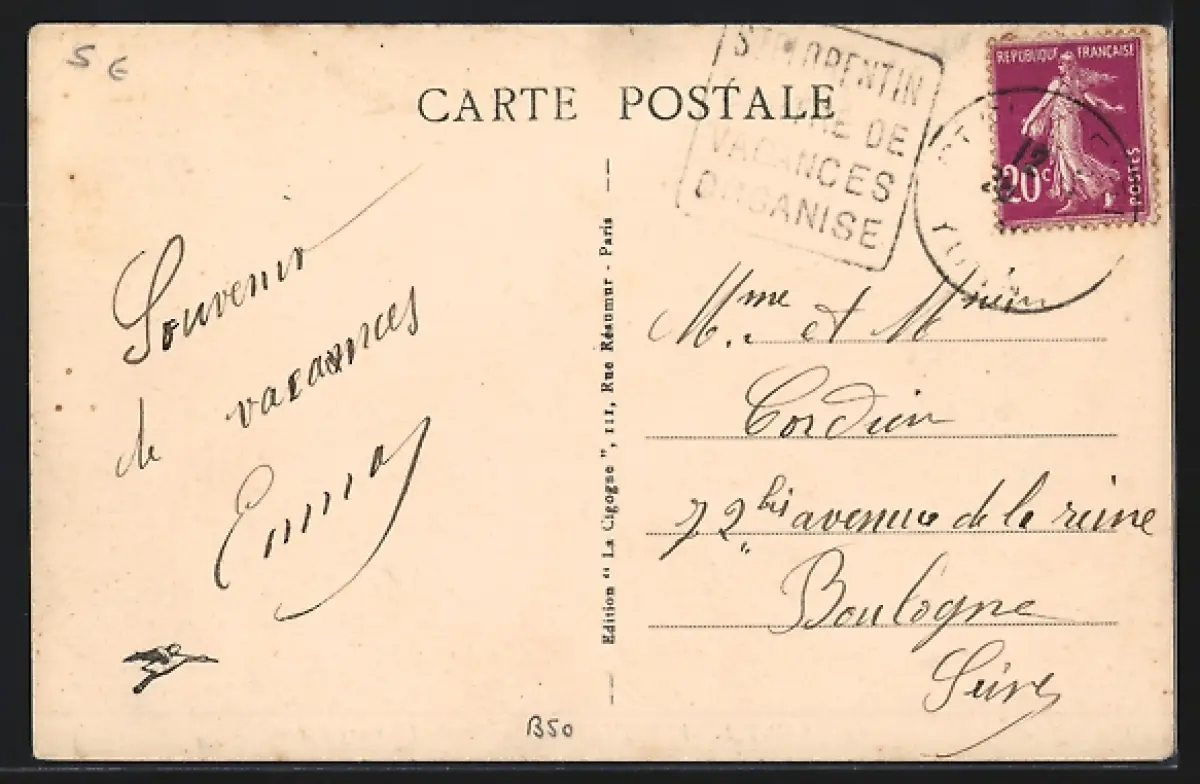 5 €
CARTE POSTALE
ST FLORENTIN
DE
VACANCES
ORGANISE
REPUBLIQUE FRANÇAISE
20 c
POSTES
12
Souvenir
de vacances
Emma
Edition "La Cigogne", 111, Rue Réaumur - Paris
Mme et M
Cordien
72 bis avenue de la reine
Boulogne
Seine
B50